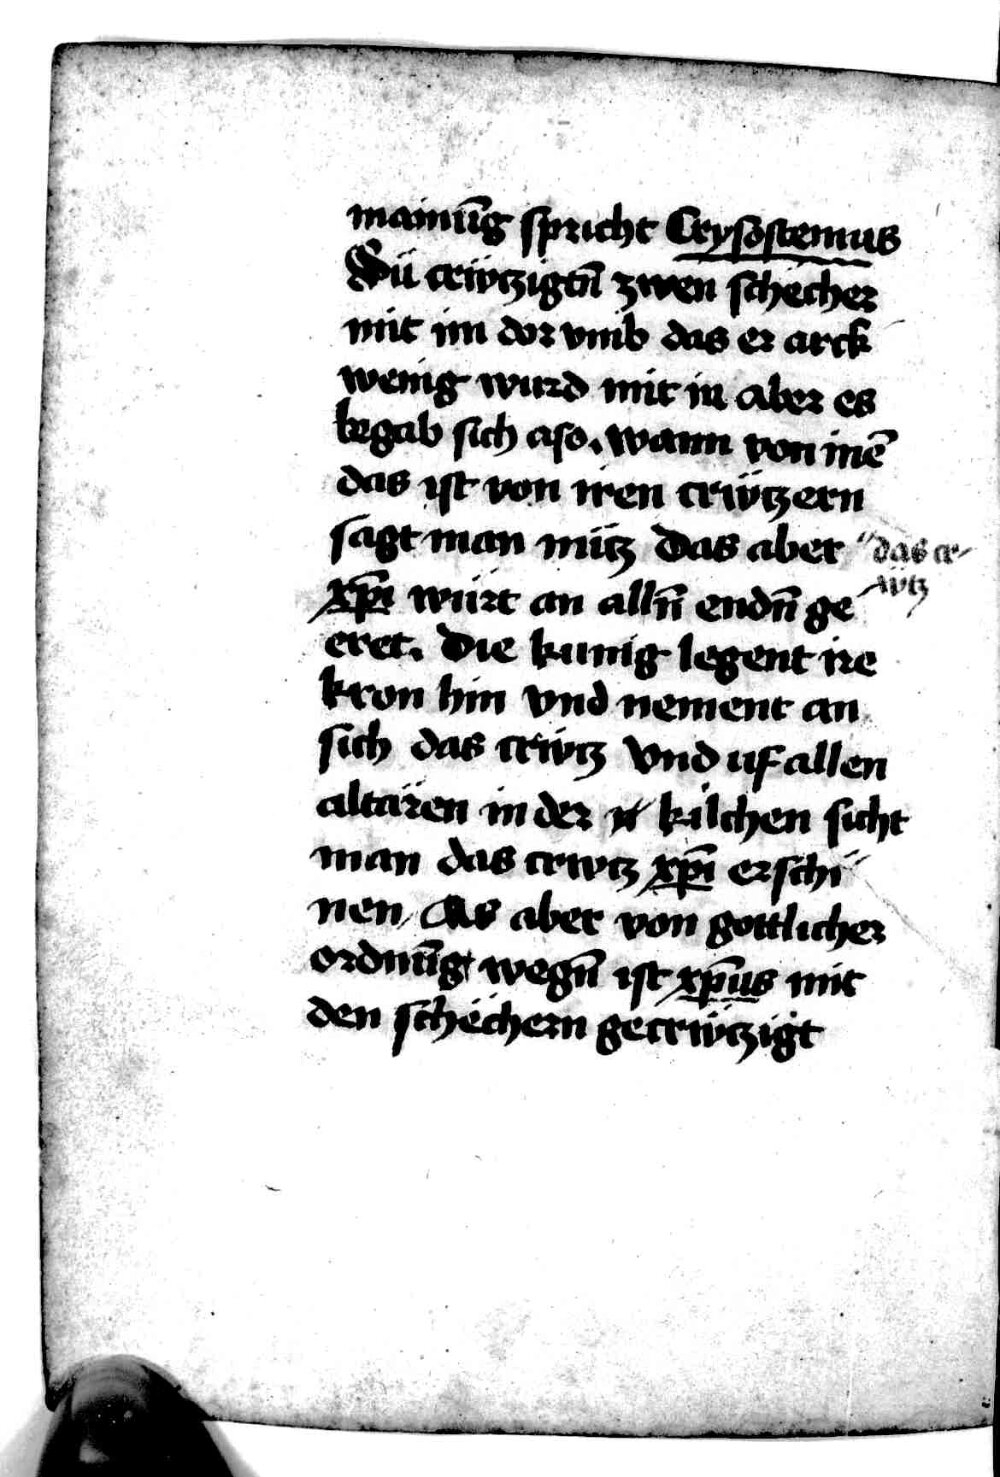 mainūg spricht Crysostemus
Sü crüwtzigtn̄ zwen schëcher
mit im dor vmb das er arck
wenig wurd mit in aber es
begab sich aso. wann von inē
das ist von iren crüwtzern
sagt man nütz das aber das cr
xp̄i würt an alln̄ endn̄ ge üwtz
eret. Die kunig legent ire
kron hin vnd nement an
sich das crüwtz vnd uf allen
altären in der kilchen sicht
man das crwtz xp̄i erschi
nen / Als aber von gottlicher
ordnūg wegn̄ ist xp̄us mit
den schëchern gecrüwtzigt